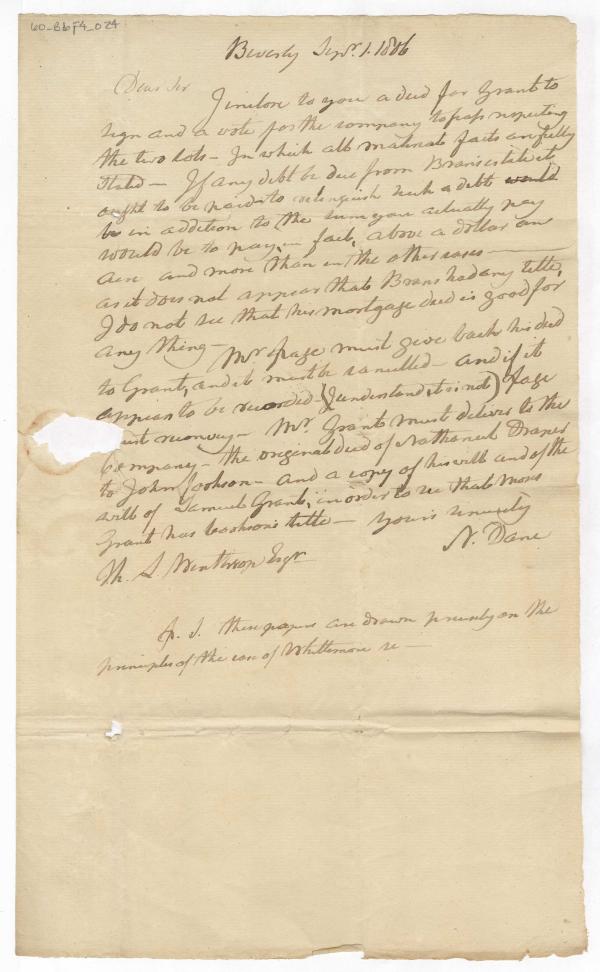 60_B6F4_024
Beverly Sepr. 1. 1806
Dear Sir
I inclose to you a deed for Grant to
sign and a vote for the company to pass respecting
the two lots – In which all material facts are fully
stated – If any debt be due from Brans estate it
ought to be paid – to relinguish such a debt would
be in addition to the sum you actually pay
would be to pay, in fact, above a dollar an
acre and more than in the other cases –
as it does not appear that Brans had any title,
I do not see that his mortgage deed is good for
any thing – Mr Page must give back his deed
to Grant, and it must be cancelled – and if it
appears to be recorded – (I understand it is not) Page
must reconvey – Mr Grant must deliver to the
Company – the original deed of Nathaniel Draper
to John Cookson – and a copy of his will and of the
will of Samuel Grant, in order to see that Moses
Grant has Cooksons title – yours sincerely
N. Dane
Th. L. Winthrop Esqr
P. S. these papers are drawn precisely on the
principles of the case of Whittemore &c –